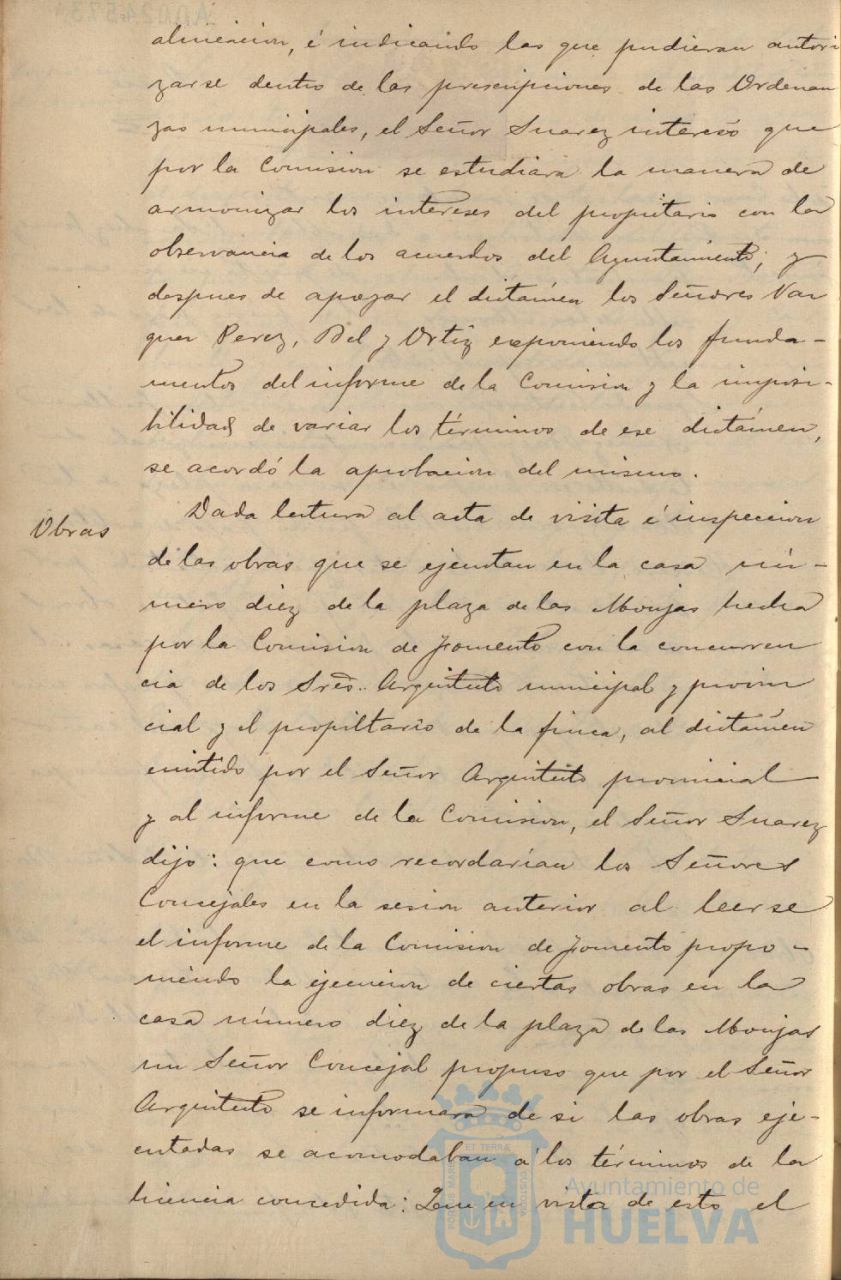 alineacion, é indicando las que pudieran autori
zarse dentro de las prescripciones de las Ordenan
zas municipales, el Señor Suarez interesó que
por la Comision se estudiara la manera de
armonizar los intereses del propietario con la
observancia de los acuerdos del Ayuntamiento; y
despues de apoyar el dictámen los Señores Vaz
quez Perez, Bel y Ortiz exponiendo los funda-
mentos del informe de la Comision y la imposi-
bilidad de variar los términos de ese dictámen,
se acordó la aprobacion del mismo.
Obras
Dada lectura al acta de visita é inspeccion
de las obras que se ejecutan en la casa nú-
mero diez de la plaza de las Monjas hecha
por la Comision de Fomento con la concurren
cia de los Sres. Arquitecto municipal y provin
cial y el propietario de la finca, al dictámen
emitido por el Señor Arquitecto provincial
y al informe de la Comision, el Señor Suarez
dijo: que como recordarian los Señores
Concejales en la sesion anterior al leerse
el informe de la Comision de Fomento propo-
niendo la ejecucion de ciertas obras en la
casa número diez de la plaza de las Monjas
un Señor Concejal propuso que por el Señor
Arquitecto se informara de si las obras eje-
cutadas se acomodaban á los términos de la
licencia concedida: Que en vista de esto el
Ayuntamiento de
HUELVA